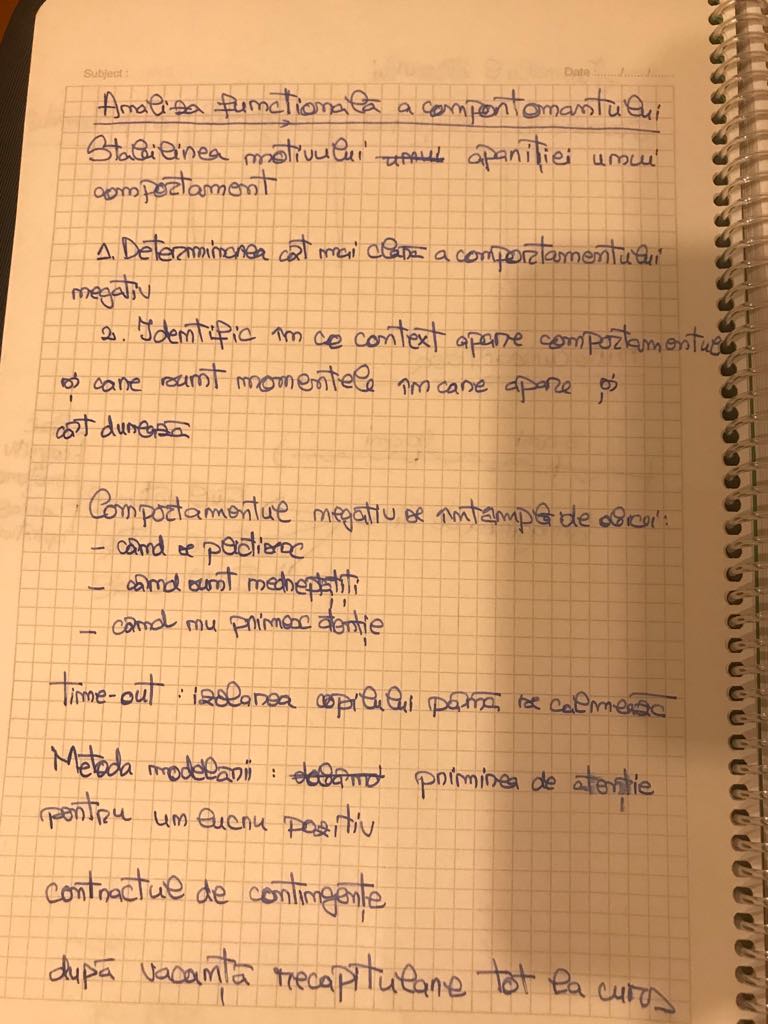 Subject : Date : ....../....../......
Analiza funcțională a comportamentului
Stabilirea motivului apariției unui
comportament
1. Determinarea cât mai clară a comportamentului
negativ
2. Identific în ce context apare comportamentul
și care sunt momentele în care apare și
cât durează
Comportamentul negativ se întâmplă de obicei:
- când se plictisesc
- când sunt nedreptățiți
- când nu primesc atenție
Time-out : izolarea copilului până se calmează
Metoda modelării : primirea de atenție
pentru un lucru pozitiv
contractul de contingențe
după vacanță recapitulare tot la curs